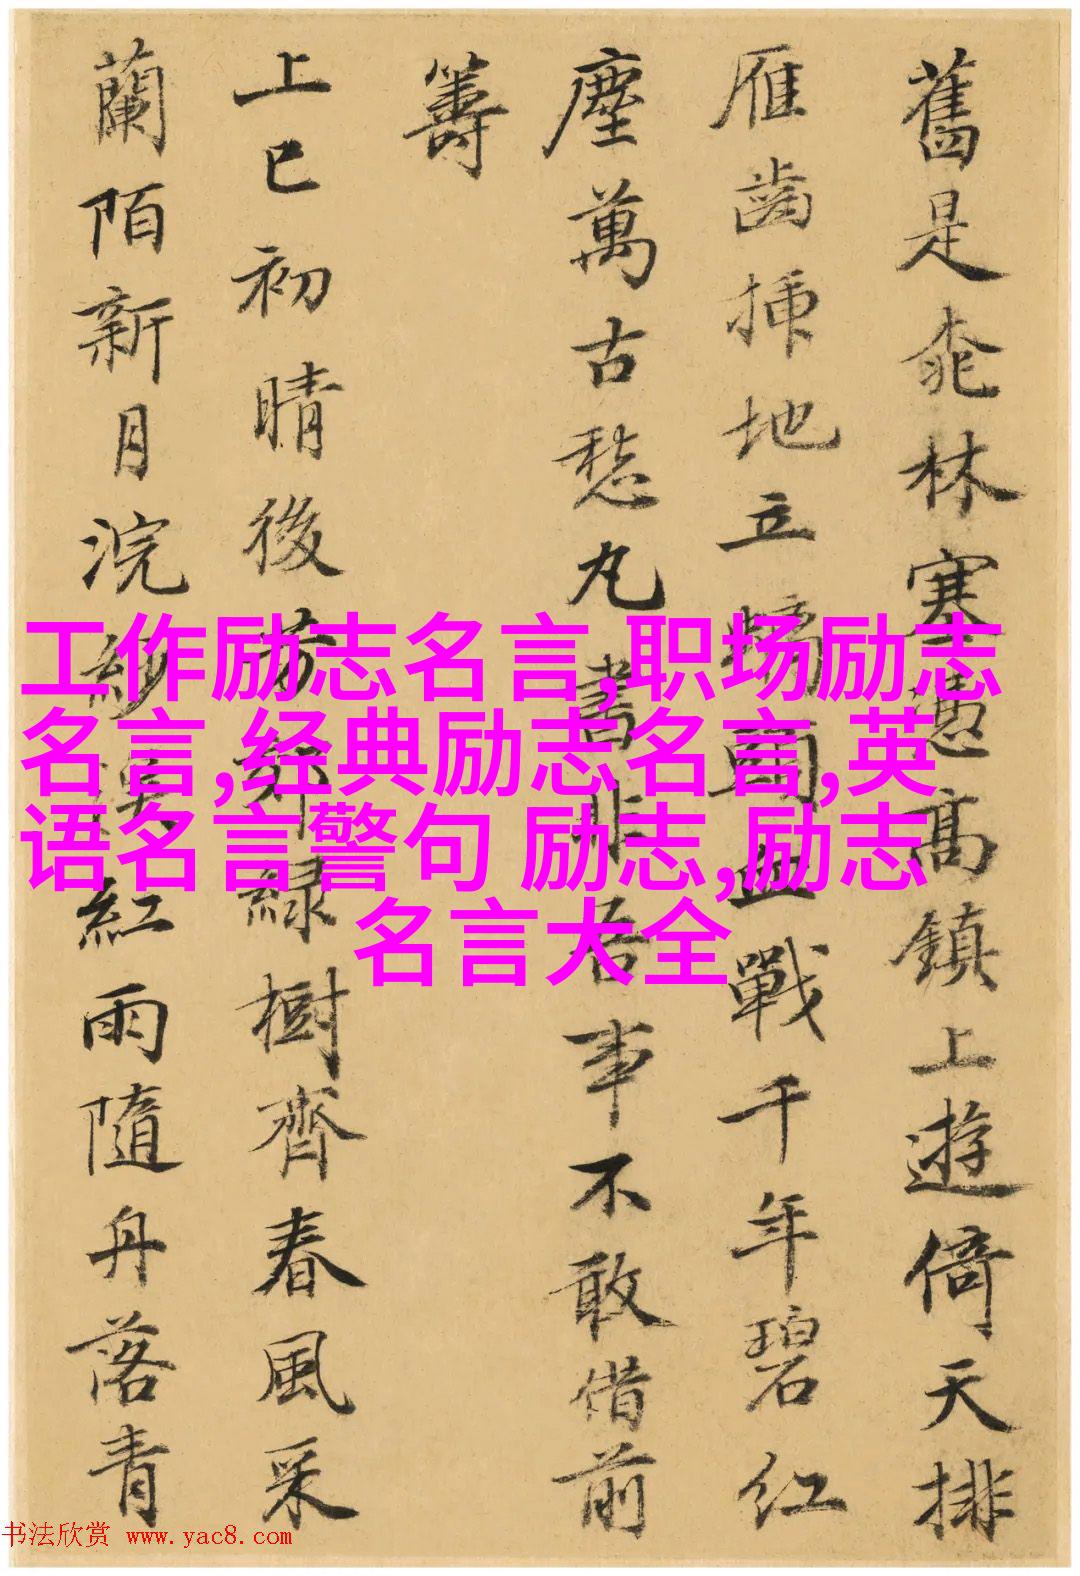 舊是桃林塞憑高鎮上遊倚天排
雁齒插地立血戰千年碧紅
塵萬古愁丸書非吾事不敢借前
籌
上巳初晴後芳郊綠樹齊春風采
蘭陌新月浣紗溪紅雨隨舟落青
工作励志名言,职场励志
名言,经典励志名言,英
语名言警句 励志,励志
名言大全
书法欣赏 www.yac8.com